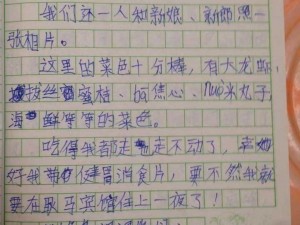 我们还一人和新娘、新郎照一
张相片。
这里的菜色十分棒，有大龙虾、
拔丝蜜桂、心、nuò米丸子，
海鲜等等的菜色。
吃得我都走不动了，幸
好我带健胃消食片，要不然我就
要在耿马宾馆住上一夜了！